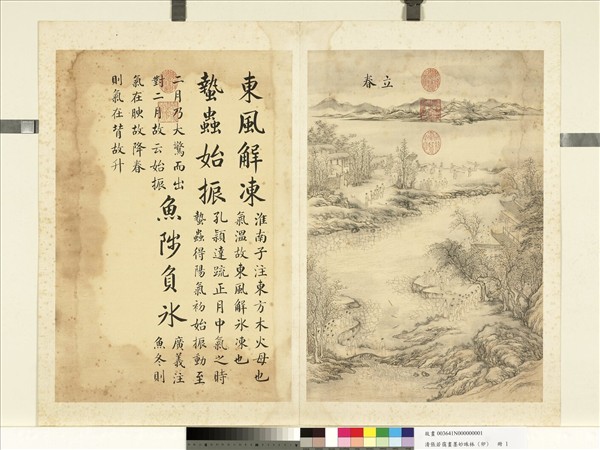 立春
東風解凍
淮南子注東方木火母也
氣溫故東風解氷凍也
蟄蟲始振
孔穎達疏正月中氣之時
蟄蟲得陽氣初始振動至
二月乃大驚而出
對二月故云始振
魚陟負氷
廣義注
魚冬則
氣在腴故降春
則氣在背故升
故畫 003641N000000001
清張若靄畫墨妙珠林（卯） 冊 1